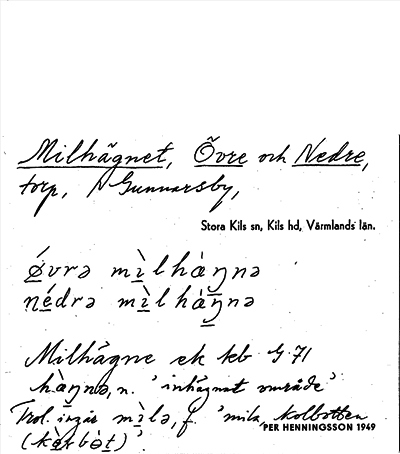 Milhägnet, Övre och Nedre,
torp, N Gunnarsby,
Stora Kils sn, Kils hd, Värmlands län.
ø̀vrə mìlhàŋnə
nédrə mìlhàŋnə
Milhägne ek keb G 71
hàŋnə, n. 'inhägnat område'
Trol. ingår mìlə, f. 'mila, kolbotten
PER HENNINGSSON 1949